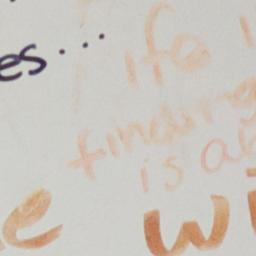 es...
ife
finding
is ab
e wi